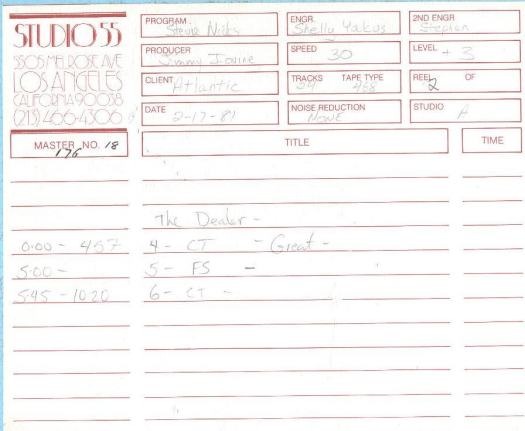 STUDIO 55
5505 MELROSE AVE
LOS ANGELES
CALIFORNIA 90038
(213) 466-4306
PROGRAM Stevie Nicks
ENGR. Shelly Yakus
2ND ENGR Stephen
PRODUCER Jimmy Iovine
SPEED 30
LEVEL + 3
CLIENT Atlantic
TRACKS 24 TAPE TYPE 468
REEL 2 OF
DATE 2-17-81
NOISE REDUCTION NONE
STUDIO A
MASTER NO. 18
176
TITLE
TIME
The Dealer -
0:00 - 457 4 - CT - Great -
5:00 - 5 - FS -
5:45 - 1020 6 - CT -